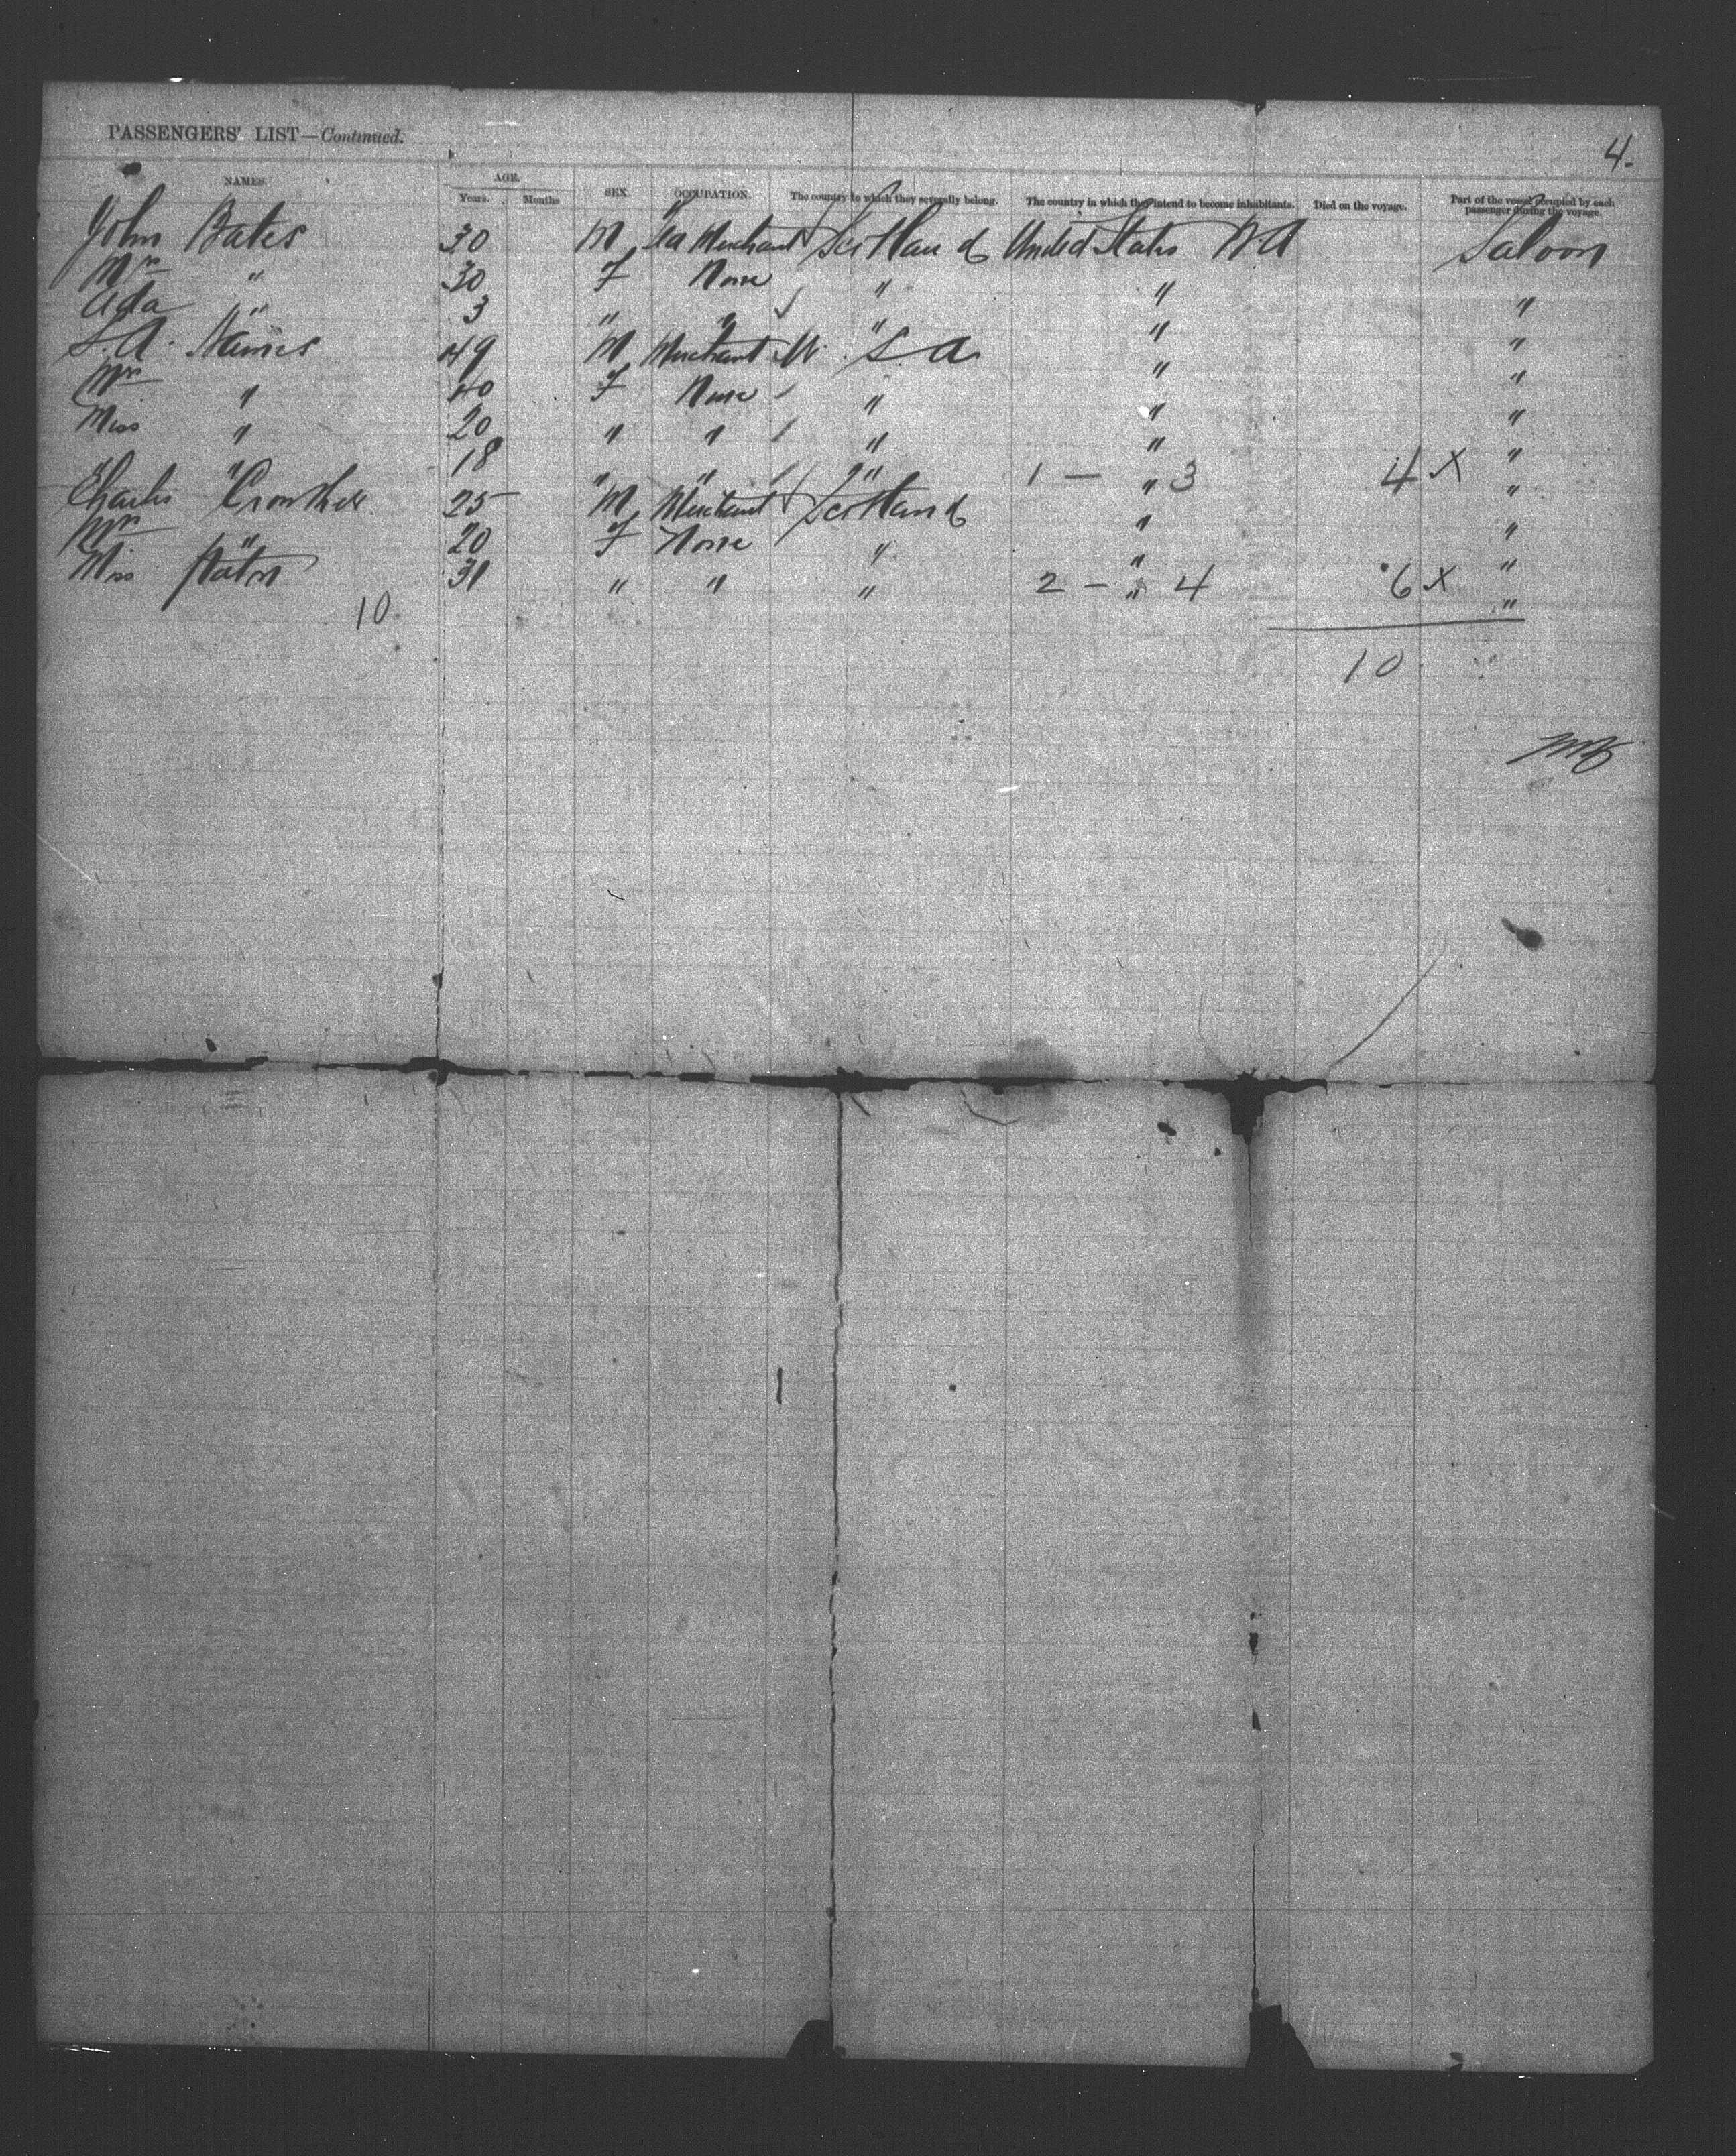 PASSENGERS' LIST—Continued.
4.
NAMES. AGE. Years. Months SEX OCCUPATION. The country to which they severally belong. The country in which they intend to become inhabitants. Died on the voyage. Part of the vessel occupied by each passenger during the voyage.
John Bates 30 M Tea Merchant Scotland United States NA Saloon
Mrs " 30 F None " " "
Ada " 3 " " " " "
S.A. 49 M Merchant U.S.A " "
Mrs " 40 F None " " "
Miss " 20 " " " " "
" " 18 " " " " "
1 — 3 4 X
Charles Crowther 25 M Merchant Scotland " "
Mrs " 20 F None " " "
Miss 31 " " " " "
2 — 4 6 X
10.
10